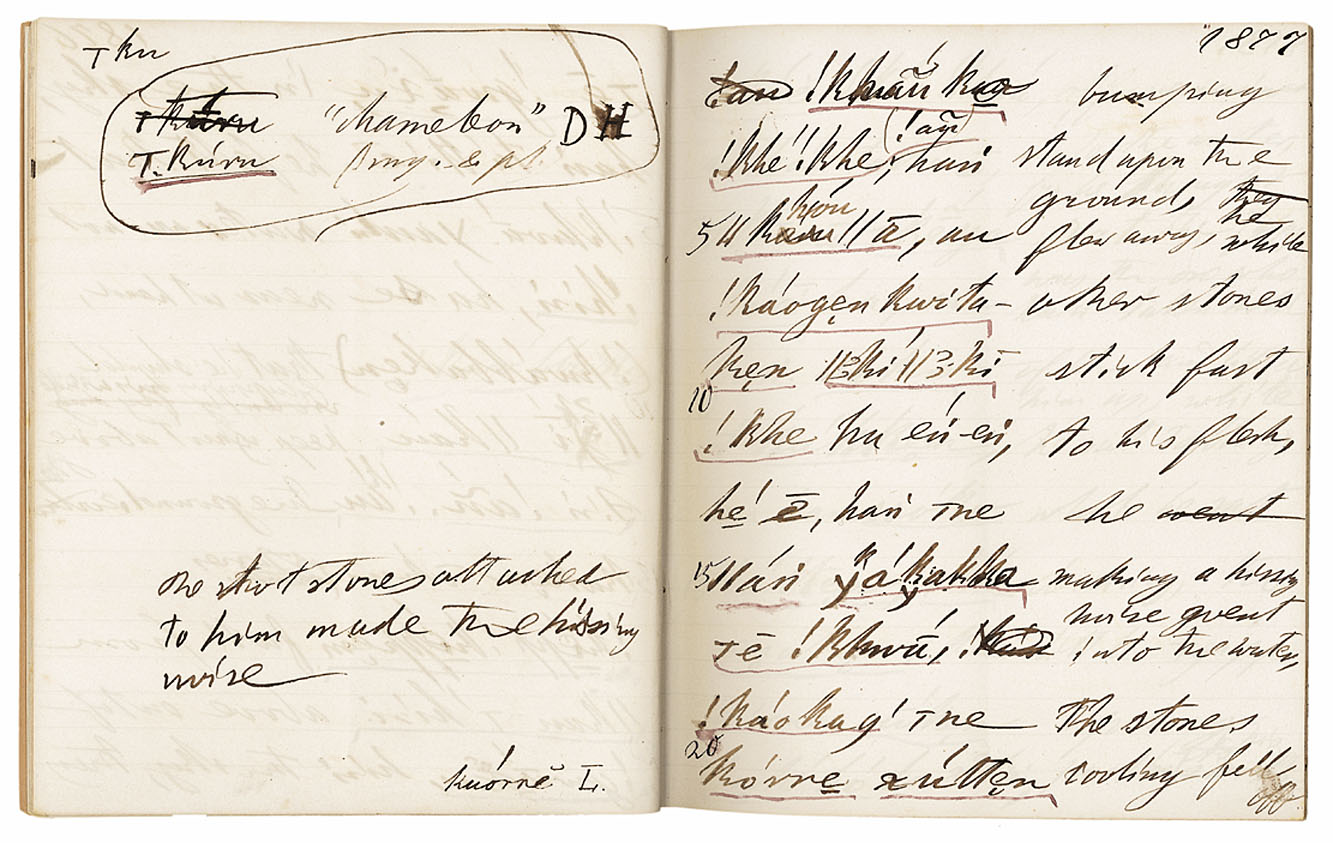 T ku
T kuru "chameleon" DH
T. Kúru sing. & pl.
The shot stones attached
to him made the hissing
noise
kuórnĕ L.
1877
!kháũ kaa bumping
!aũ
!khé !khe, haṅ stand upon the
ground, they
5 //kóu //ā, au flew away, he while
!káogẹn kwita- other stones
kẹn //kí //kī stick fast
10
!khe hu eń-eń, to his flesh,
hé ē, haṅ ⊤ne he went
15 //áṅ yákakka making a hissing
noise went
⊤ē !khwā́, into the water,
!káokaǵ ⊤ne The stones
20
kórre xúttẹn cooling fell
off